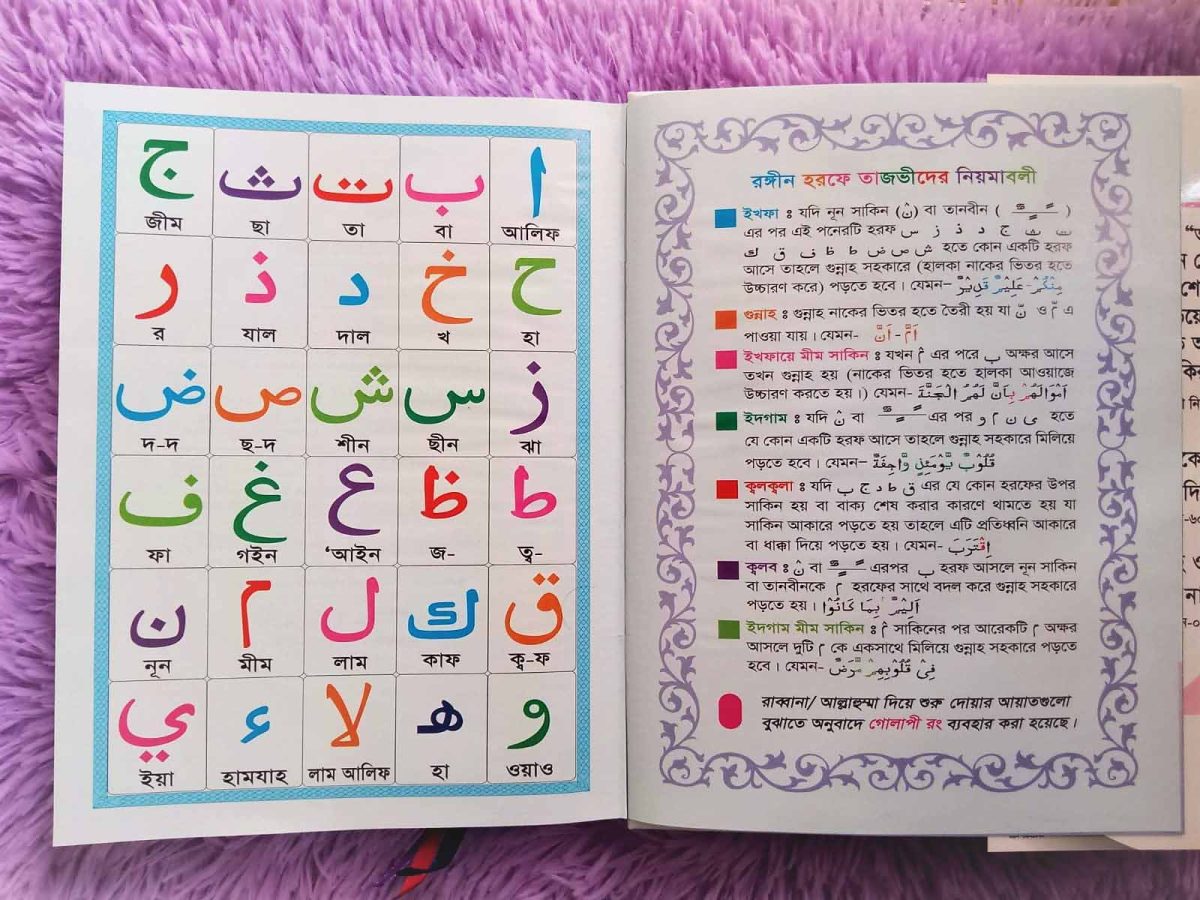 ا ب ت ث ج
আলিফ বা তা ছা জীম
ح خ د ذ ر
হা খ দাল যাল র
ز س ش ص ض
ঝা ছীন শীন ছ-দ দ-দ
ط ظ ع غ ف
ত্ব- জ- 'আইন গইন ফা
ق ك ل م ن
ক্ব-ফ কাফ লাম মীম নূন
و ه لا ء ي
ওয়াও হা লাম আলিফ হামযাহ ইয়া
রঙ্গীন হরফে তাজভীদের নিয়মাবলী
ইখফা ঃ যদি নূন সাকিন (نْ) বা তানবীন ( ـًـٍـٌ )
এর পর এই পনেরটি হরফ ت ث ج د ذ ز س
ش ص ض ط ظ ف ق ك হতে কোন একটি হরফ
আসে তাহলে গুন্নাহ সহকারে (হালকা নাকের ভিতর হতে
উচ্চারণ করে) পড়তে হবে। যেমন- مِنْكُمْ - عَلِيْمٌ قَدِيْرٌ
গুন্নাহ ঃ গুন্নাহ নাকের ভিতর হতে তৈরী হয় যা نّ ও مّ এ
পাওয়া যায়। যেমন- اَمَّ - اَنَّ
ইখফায়ে মীম সাকিন ঃ যখন مْ এর পরে ب অক্ষর আসে
তখন গুন্নাহ হয় (নাকের ভিতর হতে হালকা আওয়াজে
উচ্চারণ করতে হয়।) যেমন- اَمْوَالَهُمْ بِاَنَّ لَهُمُ الْجَنَّةَ
ইদগাম ঃ যদি نْ বা ـًـٍـٌ এর পর و م ن ى হতে
যে কোন একটি হরফ আসে তাহলে গুন্নাহ সহকারে মিলিয়ে
পড়তে হবে। যেমন- قُلُوْبٌ يَّوْمَئِذٍ وَّاجِفَةٌ
ক্বলক্বলা ঃ যদি ق ط د ج ب এর যে কোন হরফের উপর
সাকিন হয় বা বাক্য শেষ করার কারণে থামতে হয় যা
সাকিন আকারে পড়তে হয় তাহলে এটি প্রতিধ্বনি আকারে
বা ধাক্কা দিয়ে পড়তে হয়। যেমন- اِقْتَرَبَ
ক্বলব ঃ نْ বা ـًـٍـٌ এরপর ب হরফ আসলে নূন সাকিন
বা তানবীনকে م হরফের সাথে বদল করে গুন্নাহ সহকারে
পড়তে হয়। اَلِيْمٌۢ بِمَا كَانُوْا
ইদগাম মীম সাকিন ঃ مْ সাকিনের পর আরেকটি م অক্ষর
আসলে দুটি م কে একসাথে মিলিয়ে গুন্নাহ সহকারে পড়তে
হবে। যেমন- فِىْ قُلُوْبِهِمْ مَّرَضٌ
রাব্বানা/ আল্লাহুম্মা দিয়ে শুরু দোয়ার আয়াতগুলো
বুঝাতে অনুবাদে গোলাপী রং ব্যবহার করা হয়েছে।